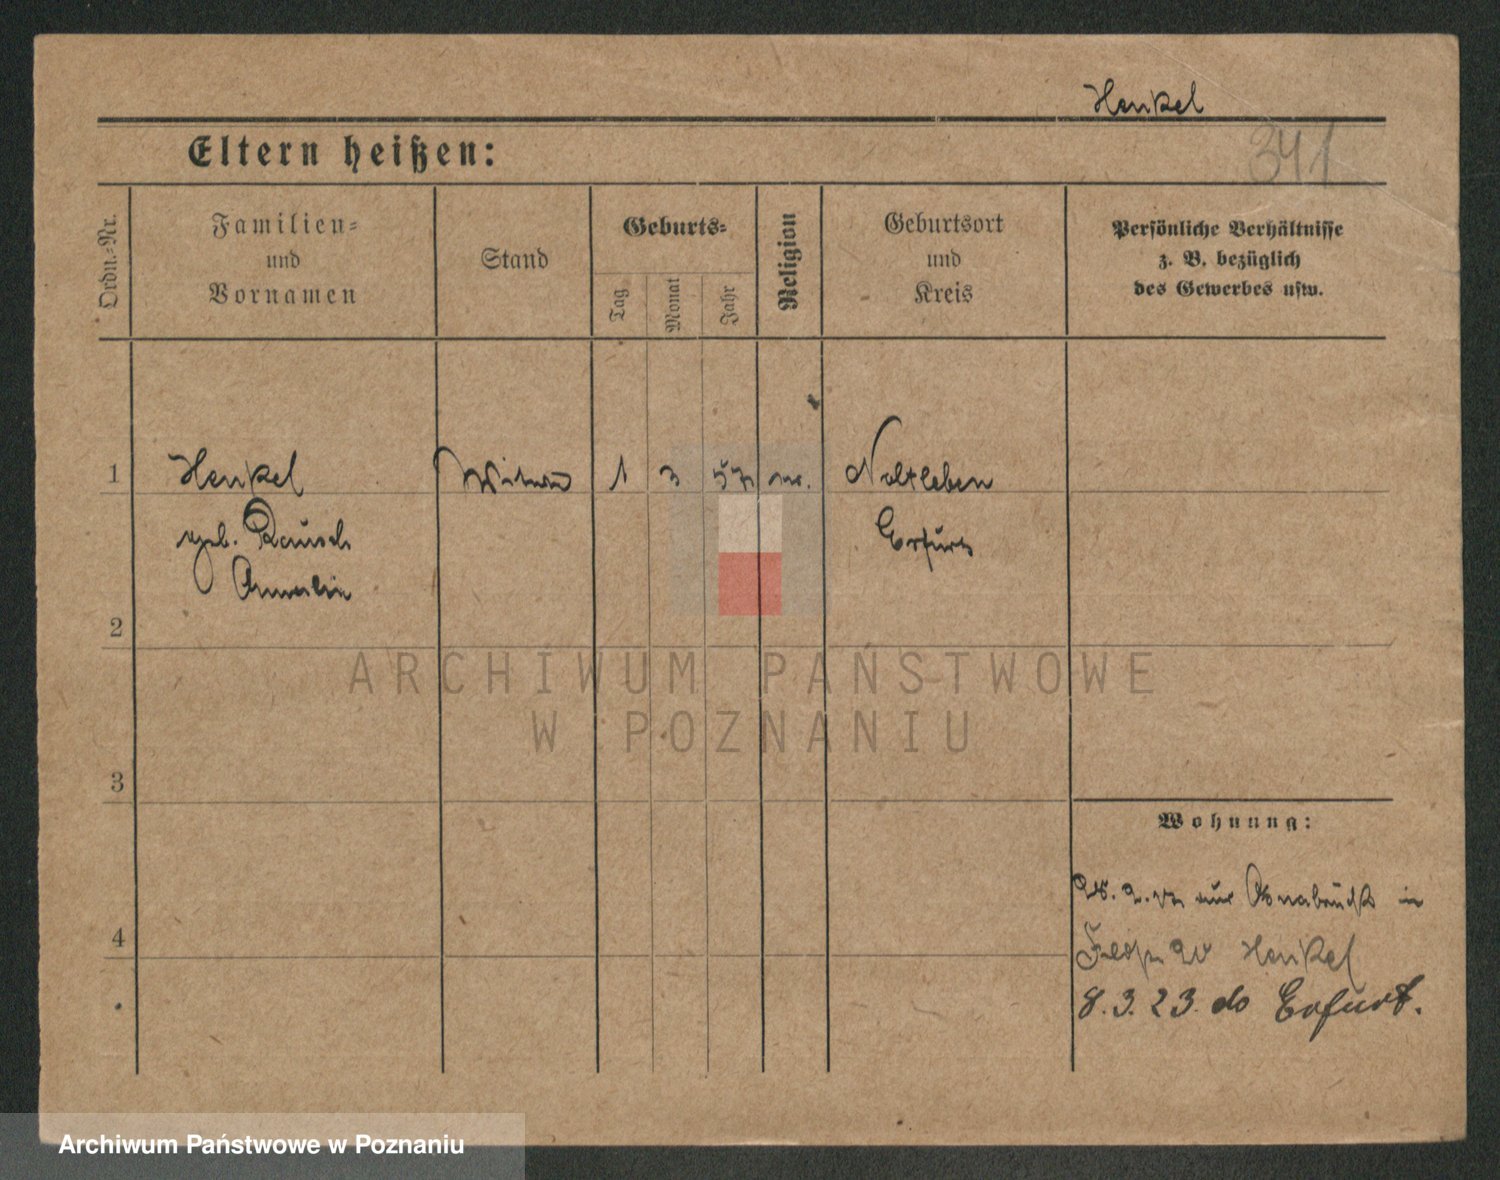 Henkel
341
Eltern heißen:
Ordn.-Nr.
Familien-
und
Vornamen
Stand
Geburts-
Tag
Monat
Jahr
Religion
Geburtsort
und
Kreis
Persönliche Verhältnisse
z. B. bezüglich
des Gewerbes usw.
1
Henkel
Witwe
1
3
57
Noltleben
geb. Rausch
Erfurt
2
ARCHIWUM PAŃSTWOWE
W POZNANIU
3
Wohnung:
Osnabrück in
4
Henkel
8.3.23. do Erfurt.
Archiwum Państwowe w Poznaniu